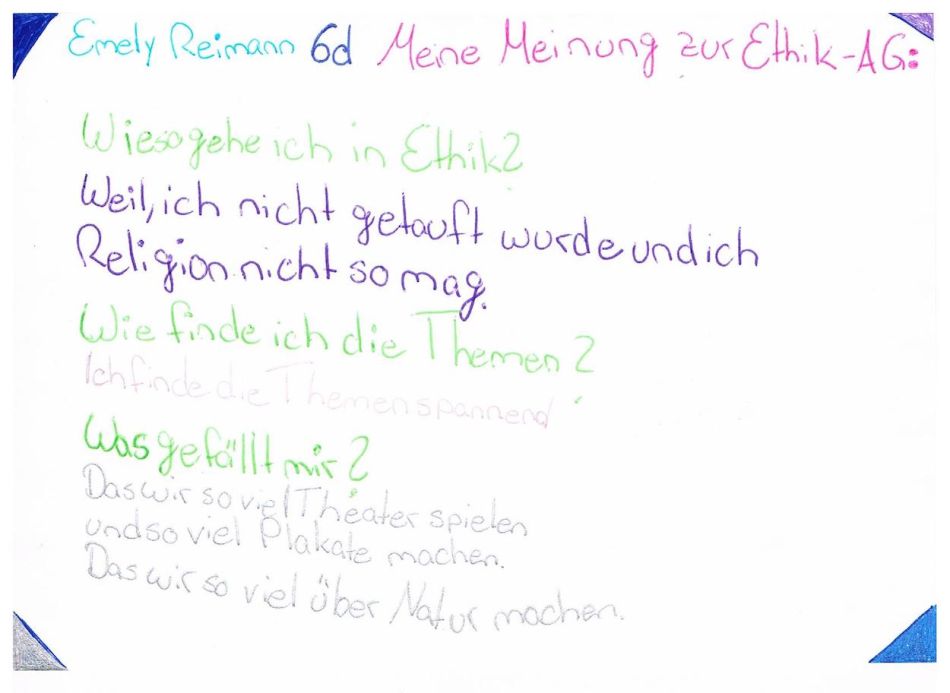 Emely Reimann 6d Meine Meinung zur Ethik-AG:
Wieso gehe ich in Ethik?
Weil, ich nicht getauft wurde und ich
Religion nicht so mag.
Wie finde ich die Themen?
Ich finde die Themen spannend
Was gefällt mir?
Das wir so viel Theater spielen
und so viel Plakate machen.
Das wir so viel über Natur machen.